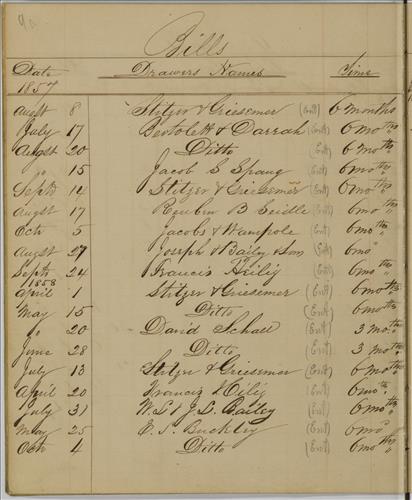 9a
Bills
Date Drawers Names Time
1857
Augst 8 Stitzer & Griesemer (Ent) 6 months
July 17 Bertolett & Darrah (Ent) 6 mos
Augst 20 Ditto (Ent) 6 mos
" 15 Jacob S Spang (Ent) 6 mos
Septr 14 Stitzer & Griesemer (Ent) 6 mos
Augst 17 Reuben B Seidle (Ent) 6 mo "
Octr 5 Jacobs & Wampole (Ent) 6 mo "
Augst 27 Joseph Baily & Son (Ent) 6 mo
Septr 24 Francis Heilig (Ent) 6 mo "
1858
April 1 Stitzer & Griesemer (Ent) 6 mos
May 15 Ditto (Ent) 6 mo
20 David Schall (Ent) 3 mos
June 28 Ditto (Ent) 3 mos
July 13 Stitzer & Griesemer (Ent) 6 mos
April 20 Francis (Ent) 6 mo
July 31 W L & J L Bailey (Ent) 6 mo
May 25 Buckley (Ent) 6 mo
Octr 4 Ditto (Ent) 6 mo "